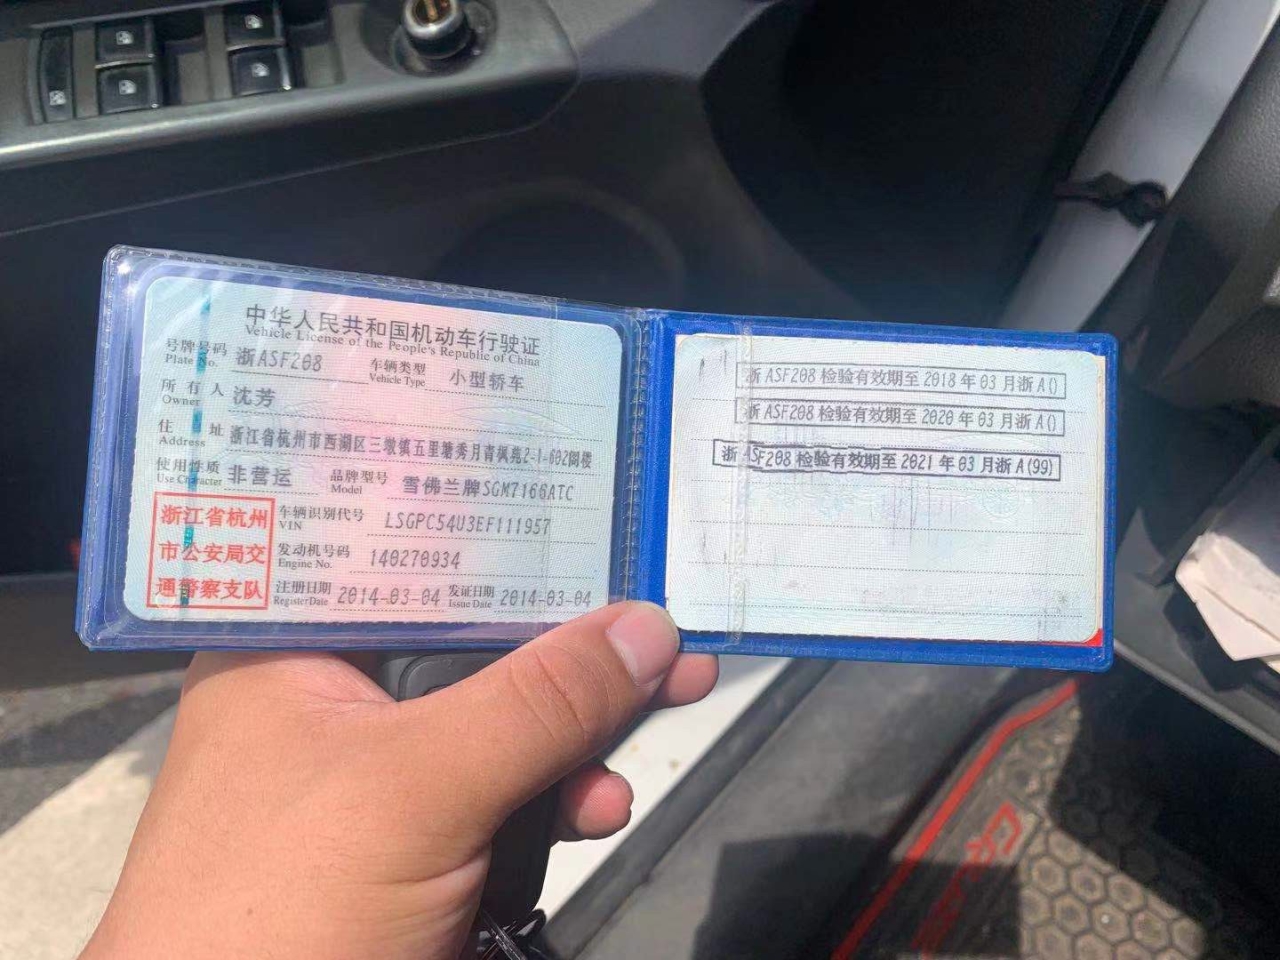 中华人民共和国机动车行驶证
Vehicle License of the People's Republic of China
号牌号码 浙ASF208 车辆类型 小型轿车
Plate No. Vehicle Type
所有人 沈芳
Owner
住址 浙江省杭州市西湖区三墩镇五里塘秀月青枫苑2-1-602阁楼
Address
使用性质 非营运 品牌型号 雪佛兰牌SGM7166ATC
Use Character Model
浙江省杭州
市公安局交
通警察支队
车辆识别代号 LSGPC54U3EF111957
VIN
发动机号码 140270934
Engine No.
注册日期 2014-03-04 发证日期 2014-03-04
Register Date Issue Date
浙ASF208检验有效期至2018年03月浙A()
浙ASF208检验有效期至2020年03月浙A()
浙ASF208检验有效期至2021年03月浙A(99)